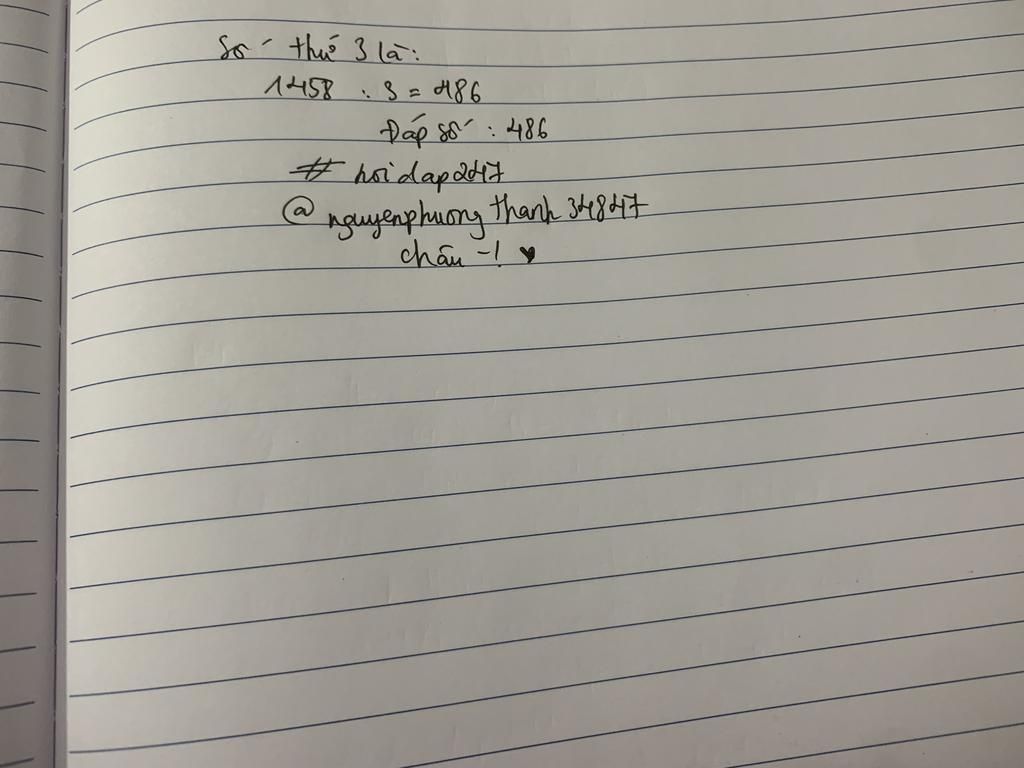 Số thứ 3 là:
1458 : 3 = 486
Đáp số : 486
# hoidap247
@nguyenphuongthanh34847
chấu -! ♥